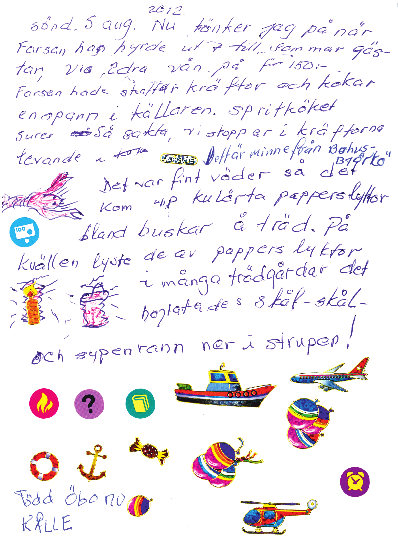 2012
sönd. 5 aug. Nu tänker jag på när
Farsan han hyrde ut 7 till sommar gäs-
tar, via 2dra vån. på Fr 150:-
Farsan hade skaffat kräfter och kokar
en spann i källaren. spritköket
surer så sakta, vi stoppar i kräftorna
levande i
Det är minne från Bohus-
Björkö
Det var fint väder så det
kom upp kulörta pappers lyktor
100
bland buskar å träd. På
kvällen lyste de av pappers lyktor
i många trädgårdar det
hojtatades skål-skål-
och supen rann ner i strupen!
?
Tädd Öbo nu
KALLE